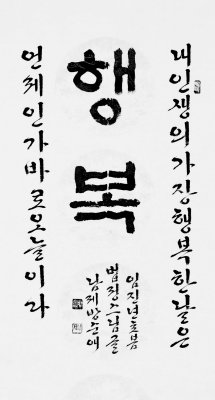 내 인생의 가장 행복한 날은
행복
언제인가 바로 오늘이라
임진년 초봄
법정스님 글
남제 방순애